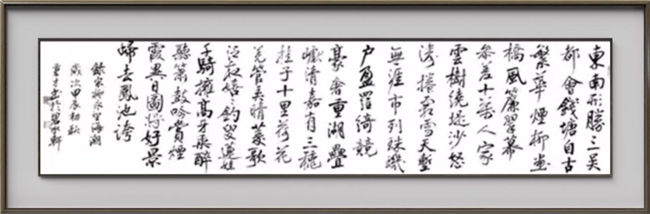 東南形勝三吳
都會錢塘自古
繁華煙柳畫
橋風簾翠幕
參差十萬人家
雲樹繞堤沙怒
濤捲霜雪天塹
無涯市列珠璣
户盈羅綺競
豪奢重湖疊
巘清嘉有三秋
桂子十里荷花
羌管弄晴菱歌
泛夜嬉嬉釣叟蓮娃
千騎擁高牙乘醉
聽簫鼓吟賞煙
霞異日圖將好景
歸去鳳池誇
錄宋柳永望海潮
歲次甲辰初秋
書於軒